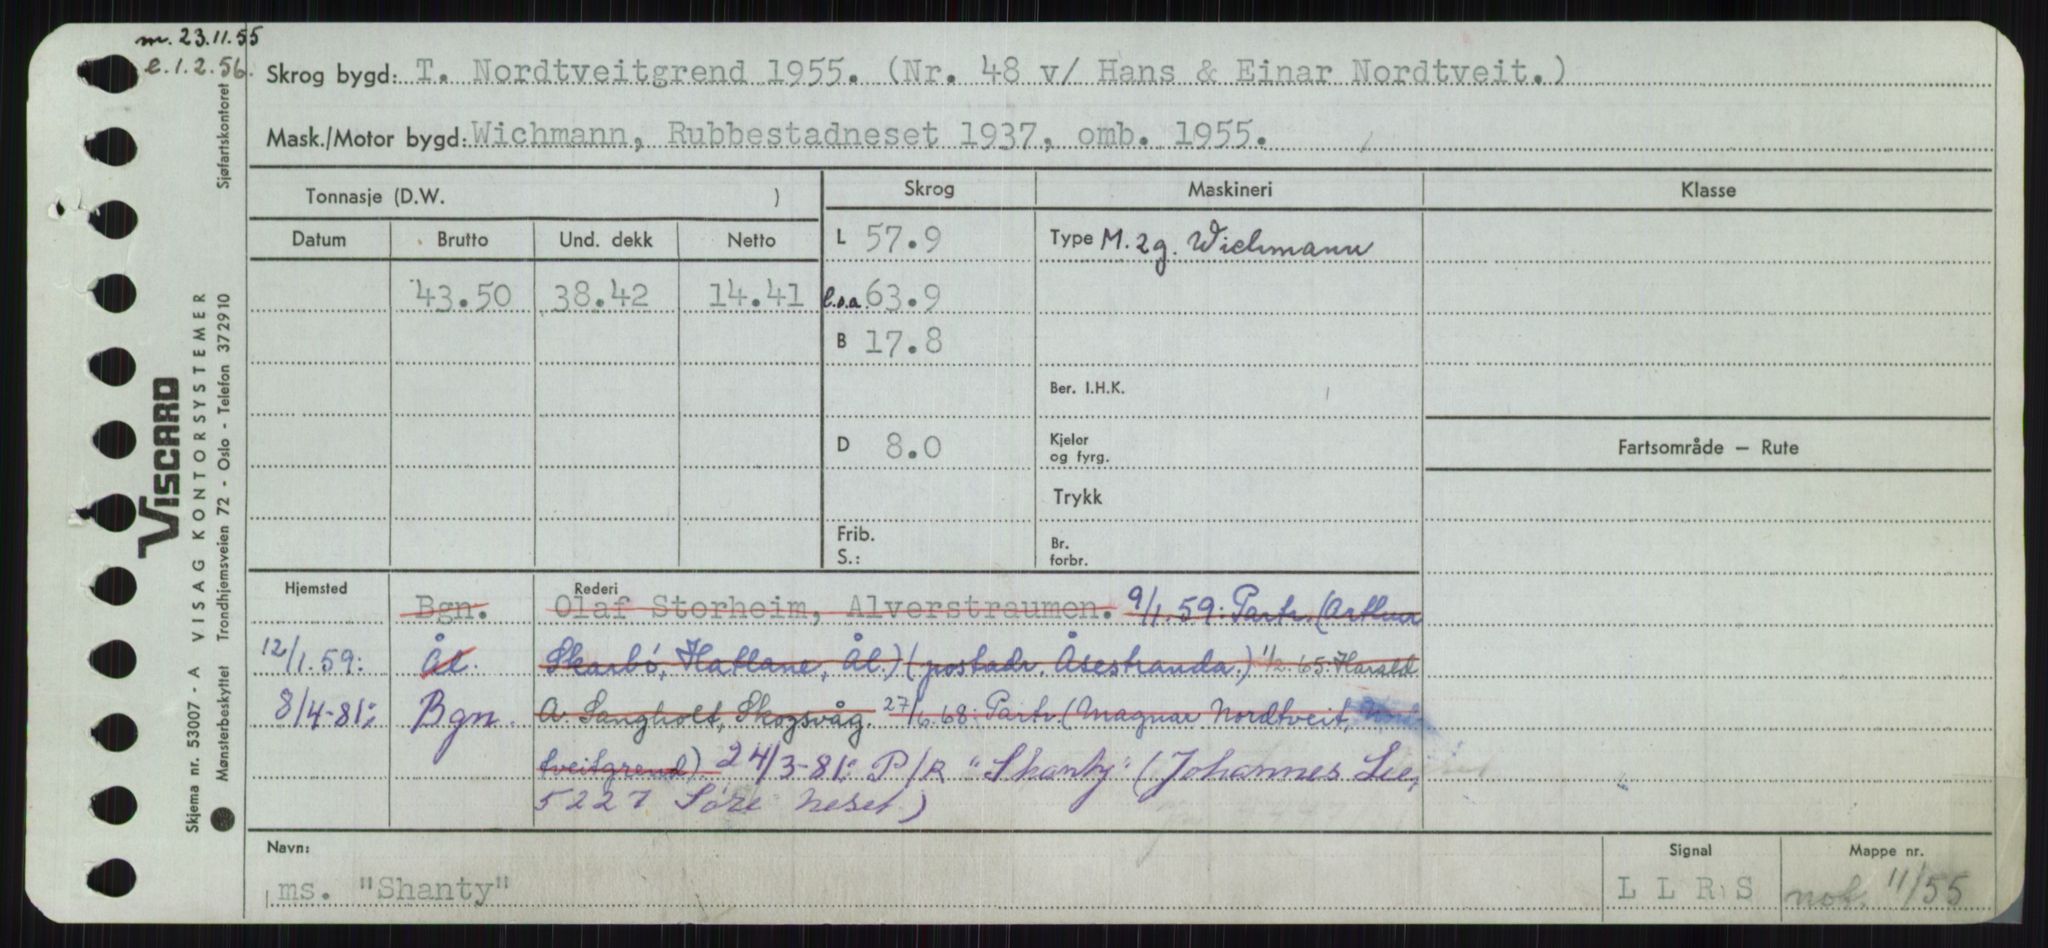 m. 23.11.55
e. 1. 2. 56.
Skrog bygd: T. Nordtveitgrend 1955. (Nr. 48 v/ Hans & Einar Nordtveit.)
Mask./Motor bygd: Wichmann, Rubbestadneset 1937, omb. 1955.
Tonnasje (D.W. ) Skrog Maskineri Klasse
Datum Brutto Und. dekk Netto L 57.9 Type M. 2 g. Wichmann
43.50 38.42 14.41 l.o.a. 63.9
B 17.8
Ber. I.H.K.
D 8.0 Kjeler og fyrg. Fartsområde — Rute
Trykk
Frib. S.: Br. forbr.
Hjemsted Rederi
Bgn. Olaf Storheim, Alverstraumen. 9/1.59: Partr. (Arthur
12/1.59: Ål. Skarbö, Hatlane, Ål.) (postadr. Åsestranda.) 1/2.65: Harald
8/4-81: Bgn. A. Sangholt, Skogsvåg. 27/6.68: Partr. (Magnar Nordtveit, Nord-
tveitgrend) 24/3-81: P/R "Shanty" (Johannes Lie,
5227 Söre Neset)
Navn: Signal Mappe nr.
ms. "Shanty" L L R S not. 11/55
Sjøfartskontoret
VISCARD
VISAG KONTORSYSTEMER
Trondhjemsveien 72 - Oslo - Telefon 372910
Skjema nr. 53007 - A
Mønsterbeskyttet